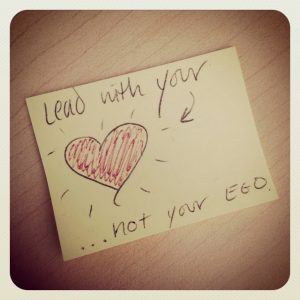 Lead with your
...not your EGO.